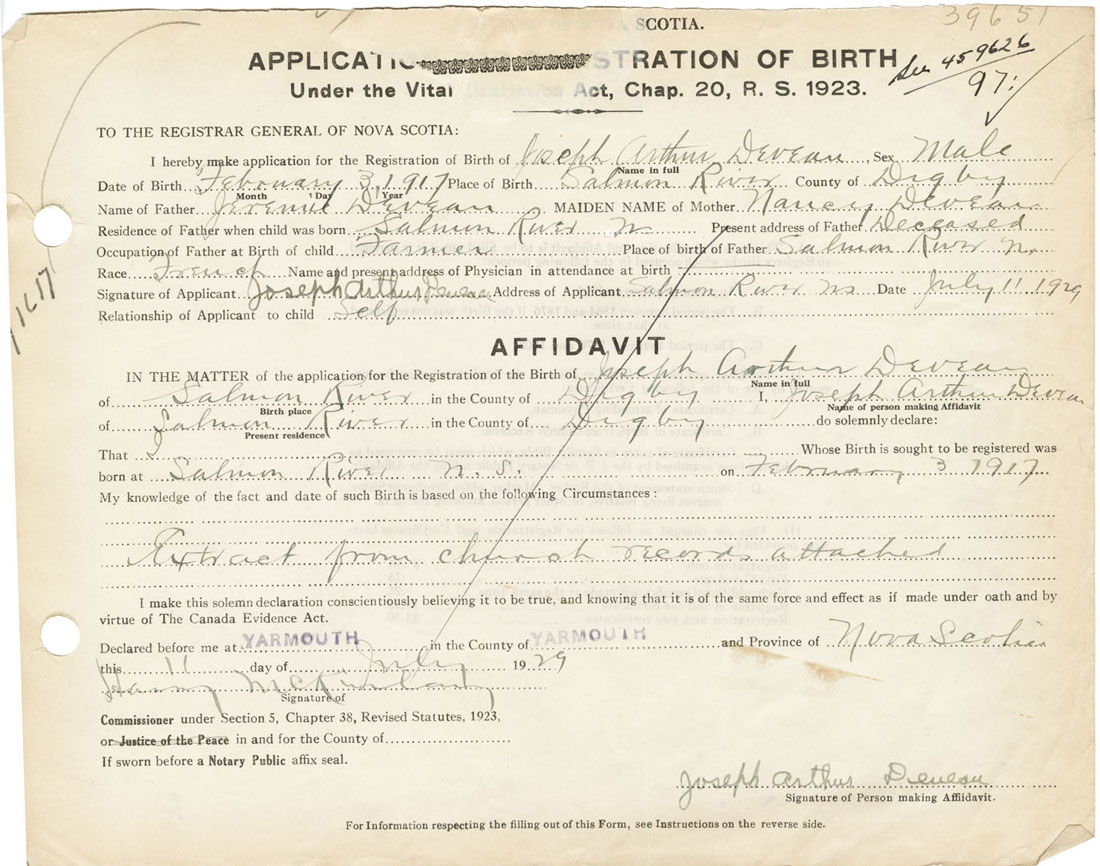 39651
SCOTIA.
APPLICATI STRATION OF BIRTH
See 459626
Under the Vital Statistics Act, Chap. 20, R. S. 1923.
97:
TO THE REGISTRAR GENERAL OF NOVA SCOTIA:
I hereby make application for the Registration of Birth of Joseph Arthur Deveau, Sex Male
Name in full
Date of Birth February 3, 1917 Place of Birth Salmon River County of Digby
Month Day Year
Name of Father Jeremie Deveau MAIDEN NAME of Mother Nancy Deveau
Residence of Father when child was born Salmon River Present address of Father Deceased
Occupation of Father at Birth of child Farmer Place of birth of Father Salmon River
Race French Name and present address of Physician in attendance at birth
Signature of Applicant Joseph Arthur Deveau Address of Applicant Salmon River NS Date July 11 1929
Relationship of Applicant to child Self
AFFIDAVIT
IN THE MATTER of the application for the Registration of the Birth of Joseph Arthur Deveau
Name in full
of Salmon River in the County of Digby I, Joseph Arthur Deveau
Birth place Name of person making Affidavit
of Salmon River in the County of Digby do solemnly declare:
Present residence
That I Whose Birth is sought to be registered was
born at Salmon River N. S. on February 3 1917
My knowledge of the fact and date of such Birth is based on the following Circumstances:
Extract from church records attached
I make this solemn declaration conscientiously believing it to be true, and knowing that it is of the same force and effect as if made under oath and by
virtue of The Canada Evidence Act.
Declared before me at YARMOUTH in the County of YARMOUTH and Province of Nova Scotia
this 11 day of July 1929
Harry
Signature of
Commissioner under Section 5, Chapter 38, Revised Statutes, 1923,
or Justice of the Peace in and for the County of
If sworn before a Notary Public affix seal.
Joseph Arthur Deveau
Signature of Person making Affidavit.
For Information respecting the filling out of this Form, see Instructions on the reverse side.